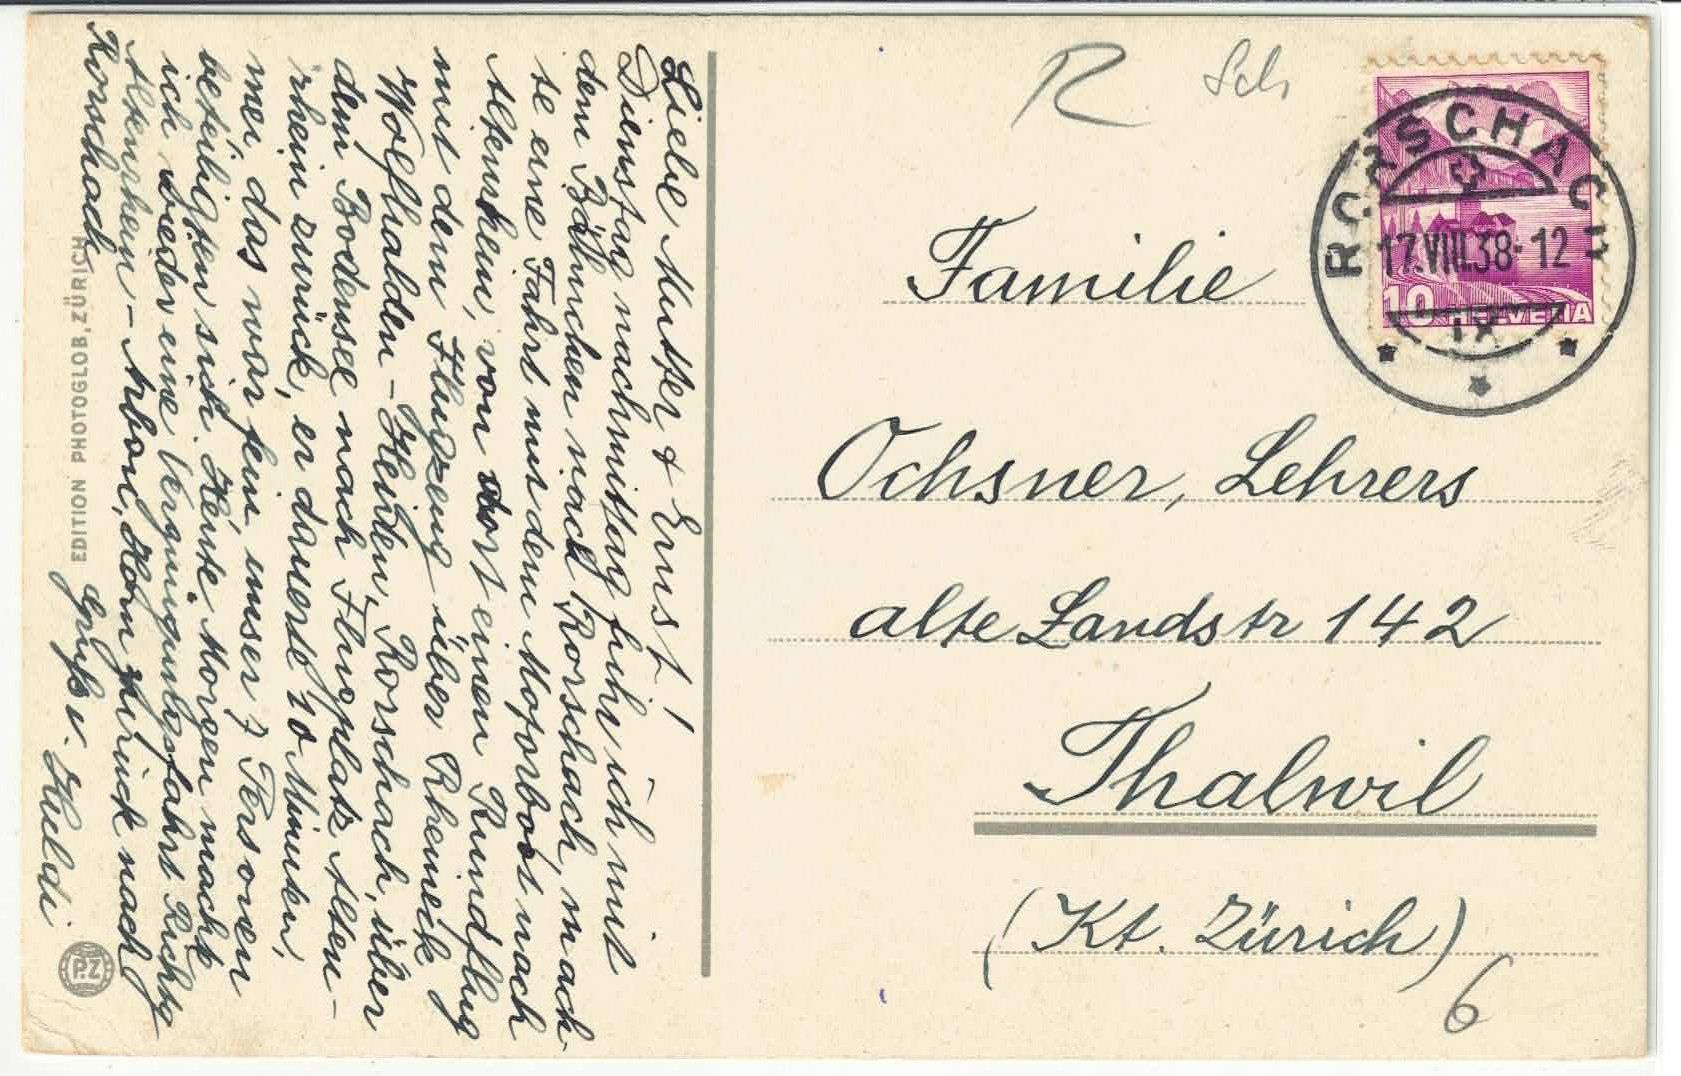 Liebe Mutter & Ernst!
Dienstag nachmittag fuhr ich mit
dem Bähnchen nach Rorschach, mach
te eine Fahrt mit dem Motorboot nach
Altenrhein, von dort einen Rundflug
mit dem Flugzeug über Rheineck
Wolfhalden - Heiden, Rorschach, über
dem Bodensee nach Flugplatz Alten-
rhein zurück, er dauerte 10 Minuten,
mei das war fein, unser 7 Personen
beteiligten sich. Heute Morgen macht
ich wieder eine Vergnügungsfahrt Richtg
Altenrhein - Arbon, Horn zurück nach
Rorschach
Gruß v. Huldi
EDITION PHOTOGLOB, ZÜRICH
P.Z
R
Sch
RORSCHACH
17.VIII.38-12
IX
10 HELVETIA
Familie
Ochsner, Lehrers
alte Landstr 142
Thalwil
(Kt. Zürich)
6